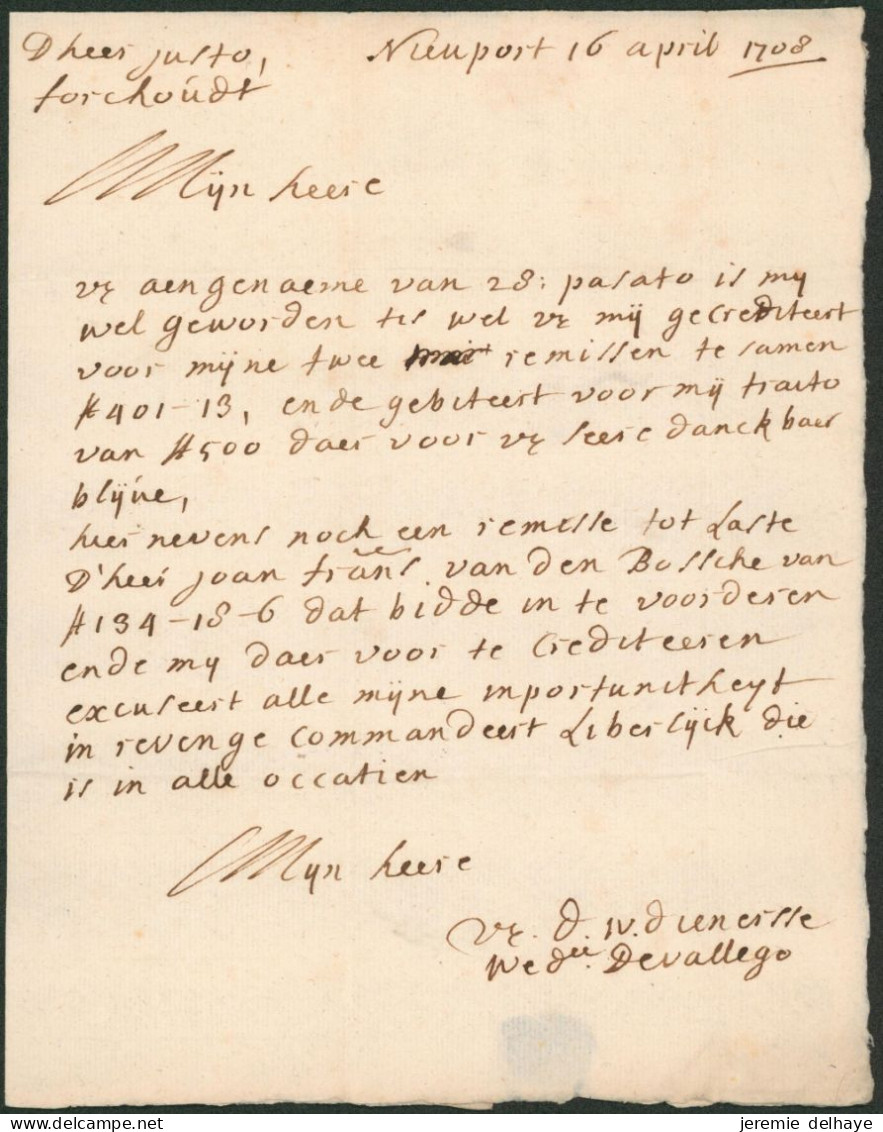 Dheer justo, Nieuport 16 april 1708
forchoudt
Mijn heere
VE aengenaeme van 28: pasato is my
wel geworden tis wel VE mij gecrediteert
voor mijne twee remissen te samen
₶401-13, ende gebiteert voor mij traito
van ₶500 daer voor VE seere danckbaer
blijve,
hier nevens noch een remisse tot Laste
D'heer joan frans van den Bossche van
₶134-18-6 dat bidde in te voorderen
ende my daer voor te Crediteeren
excuseert alle mijne inportunitheyt
in revenge commandeert Liberlijck die
is in alle occatien
Mijn heere
VE. d. w. dienersse
wed.ee Devallego
jeremie delhaye